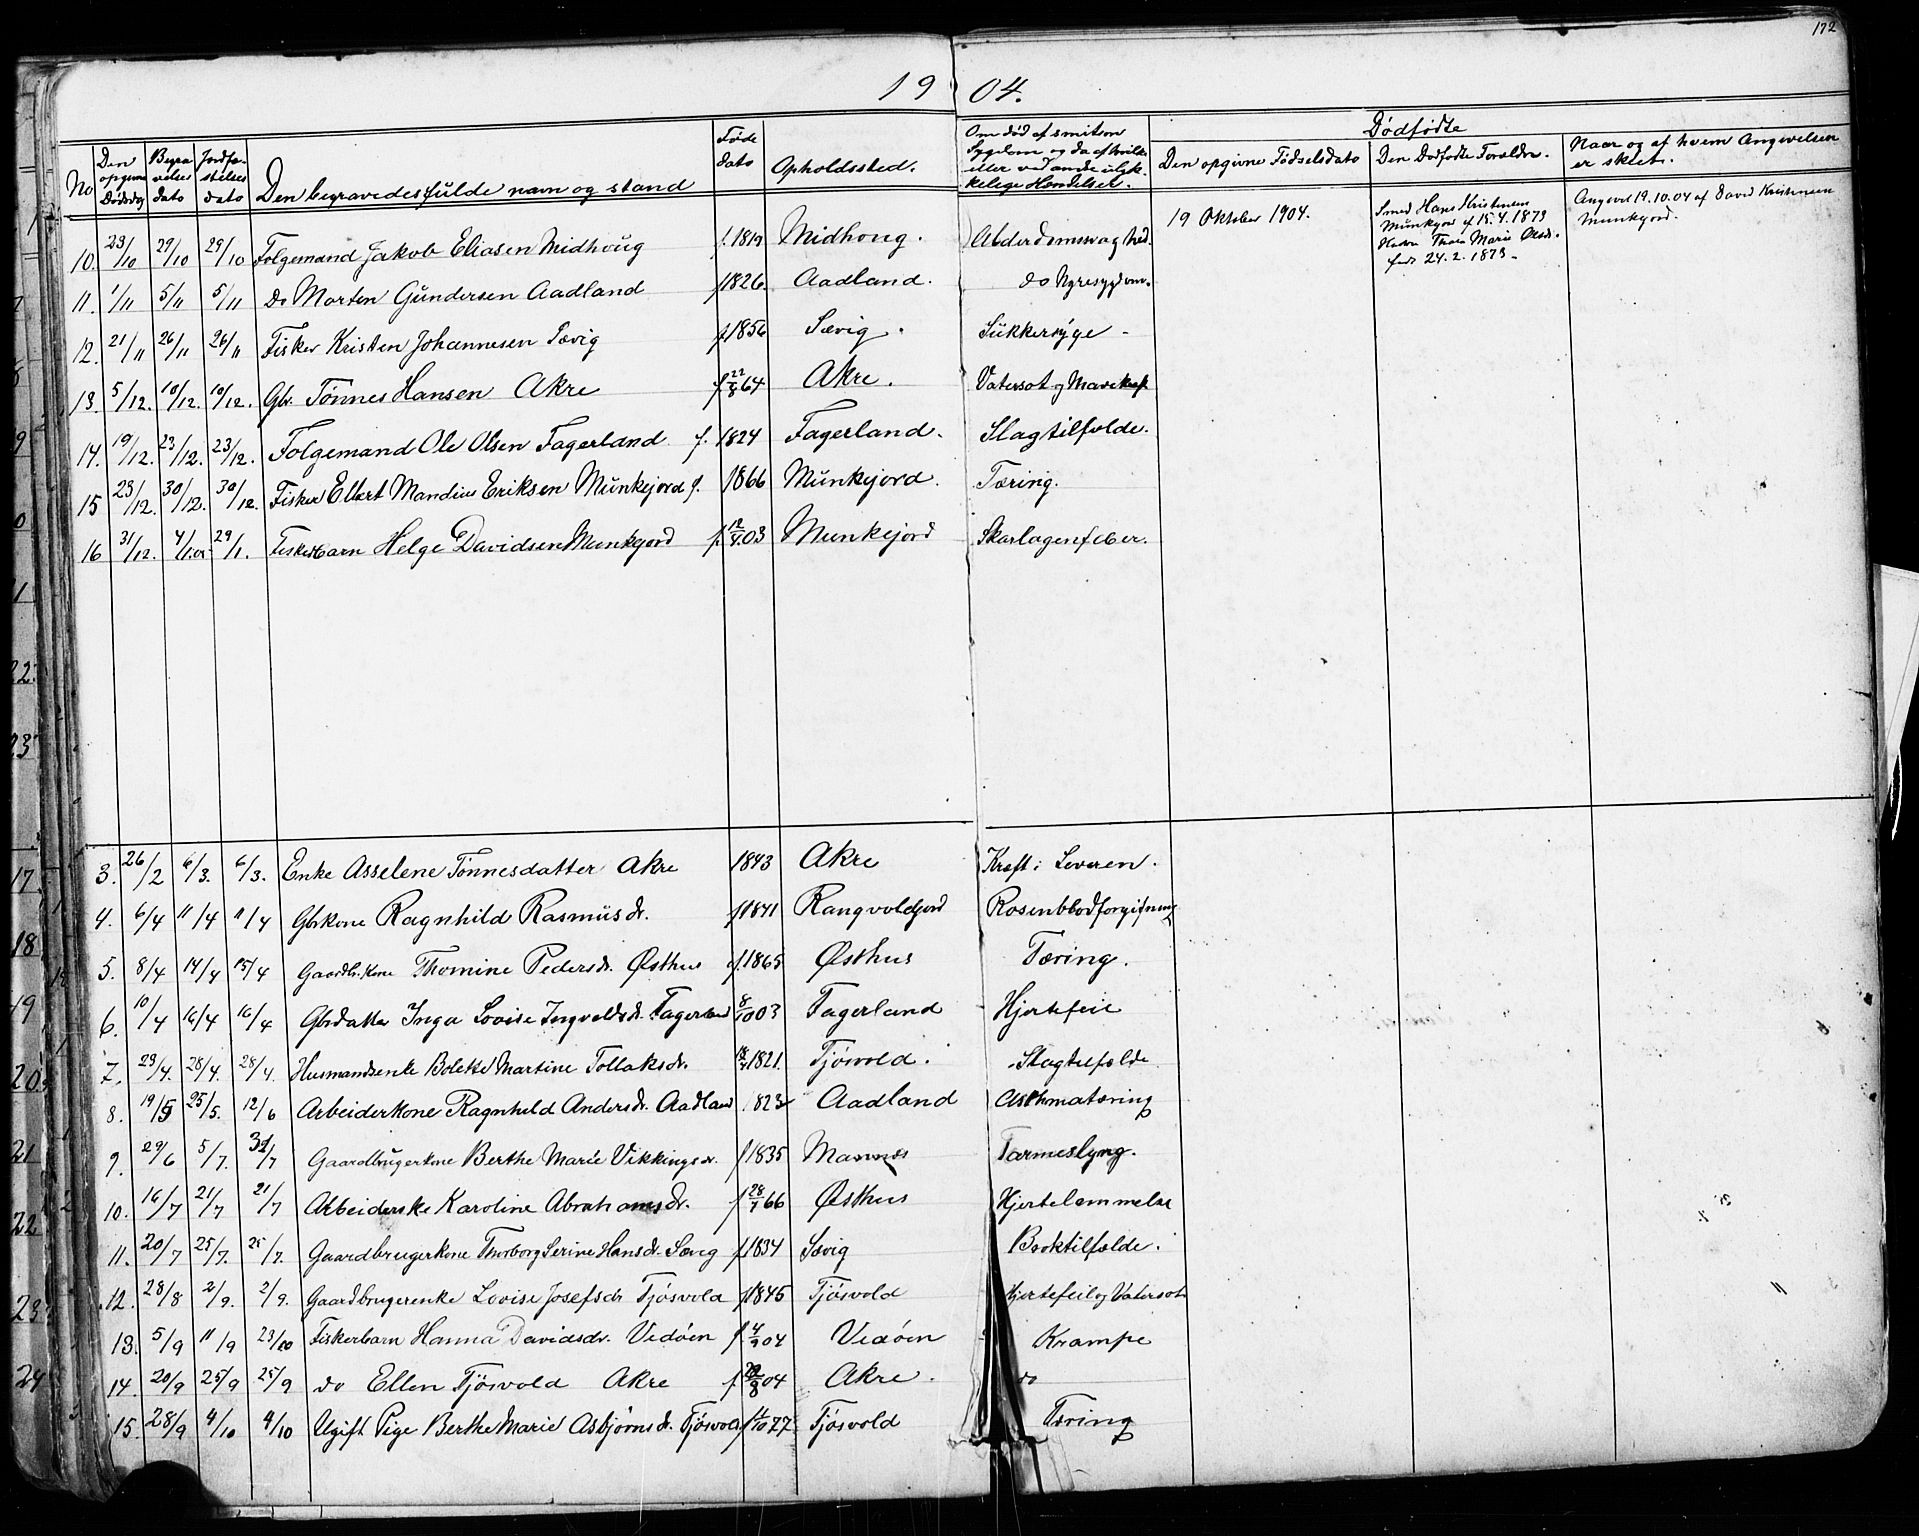 172
19 04.
No
Den opgivne Dødsdag
Begravelses dato
Jordfæstelses dato
Den begravedes fulde navn og stand
Føde dato
Opholdssted.
Om død af smitsom Sygdom og da af hvilken eller ved andre ulykkelige Hendelser.
Dødfødte
Den opgivne Fødselsdato
Den Dødfødte Forældre.
Naar og af hvem Angivelsen er skeet.
19 Oktober 1904.
Smed Hans Kristensen Munkejord f 15.4.1873
Hustru Marie Olsd. født 24.2.1873.
Angivet 19.10.04 af David Kristensen Munkejord.
10. 23/10 29/10 29/10 Folgemand Jakob Eliasen Midhoug f. 1819 Midhoug. Alderdomssvaghed.
11. 1/11 5/11 5/11 Do Morten Gundersen Aadland f 1826. Aadland. do Nyresygdom.
12. 21/11 26/11 26/11 Fisker Kristen Johannesen Sævig f. 1856 Sævig. Sukkersyge
13. 5/12. 10/12. 10/12. Gbr. Tønnes Hansen Akre f. 22/8 64 Akre. Vatersot og Mavekræft
14. 19/12. 23/12. 23/12. Folgemand Ole Olsen Fagerland f. 1824 Fagerland. Slagtilfælde.
15 23/12. 30/12. 30/12. Fisker Elbert Mandius Eriksen Munkejord f. 1866 Munkejord. Tæring.
16 31/12. 4/1.05 29/1. Fiskerbarn Helge Davidsen Munkejord f. 12/4.03 Munkejord Skarlagenfeber.
3. 26/2 6/3. 6/3. Enke Asselene Tønnesdatter Akre 1843 Akre Kræft i Leveren.
4. 6/4 11/4 11/4 Gbrkone Ragnhild Rasmusdr. f 1841 Rangvoldejord Rosenblodforgiftning
5. 8/4 14/4 15/4 Gaardbr.kone Thomine Pedersdr. Østhus f. 1865 Østhus Tæring.
6. 10/4 16/4 16/4 Gbrdatter Inga Lovise Ingvaldsdr. Fagerland 8/10 03 Fagerland Hjertefeil
7. 23/4. 28/4. 28/4. Husmandsenke Bolette Martine Tollaksdr. 1821. Tjøsvold. Slagtilfælde
8. 19/5 25/5. 12/6 Arbeiderkone Ragnhild Andersdr. Aadland 1823 Aadland Asthmatæring
9. 29/6 5/7. 31/7 Gaardbrugerkone Berthe Marie Vikkingsdr. f 1835 Mannes Tarmeslyng.
10. 16/7 21/7 21/7 Arbeiderske Karoline Abrahamsdr. f 28/7 66 Østhus Hjertelammelse
11. 20/7 25/7. 25/7. Gaardbrugerkone Thorborg Serine Hansdr. Sævig f 1834 Sævig Broktilfælde.
12. 28/8 2/9. 2/9. Gaardbrugerenke Lovise Josefsdr Tjøsvold f 1845 Tjøsvold Hjertefeil og Vatersot
13. 5/9 11/9 23/10 Fiskerbarn Hanna Davidsdr. Vedøen f 4/9 04 Vedøen Krampe
14. 20/9 25/9 25/9 do Ellen Tjøsvold Akre f. 04 Akre. do
15. 28/9 4/10 4/10 Ugift Pige Berthe Marie Asbjørnsdr. Tjøsvold f 4/10 77 Tjøsvold Tæring